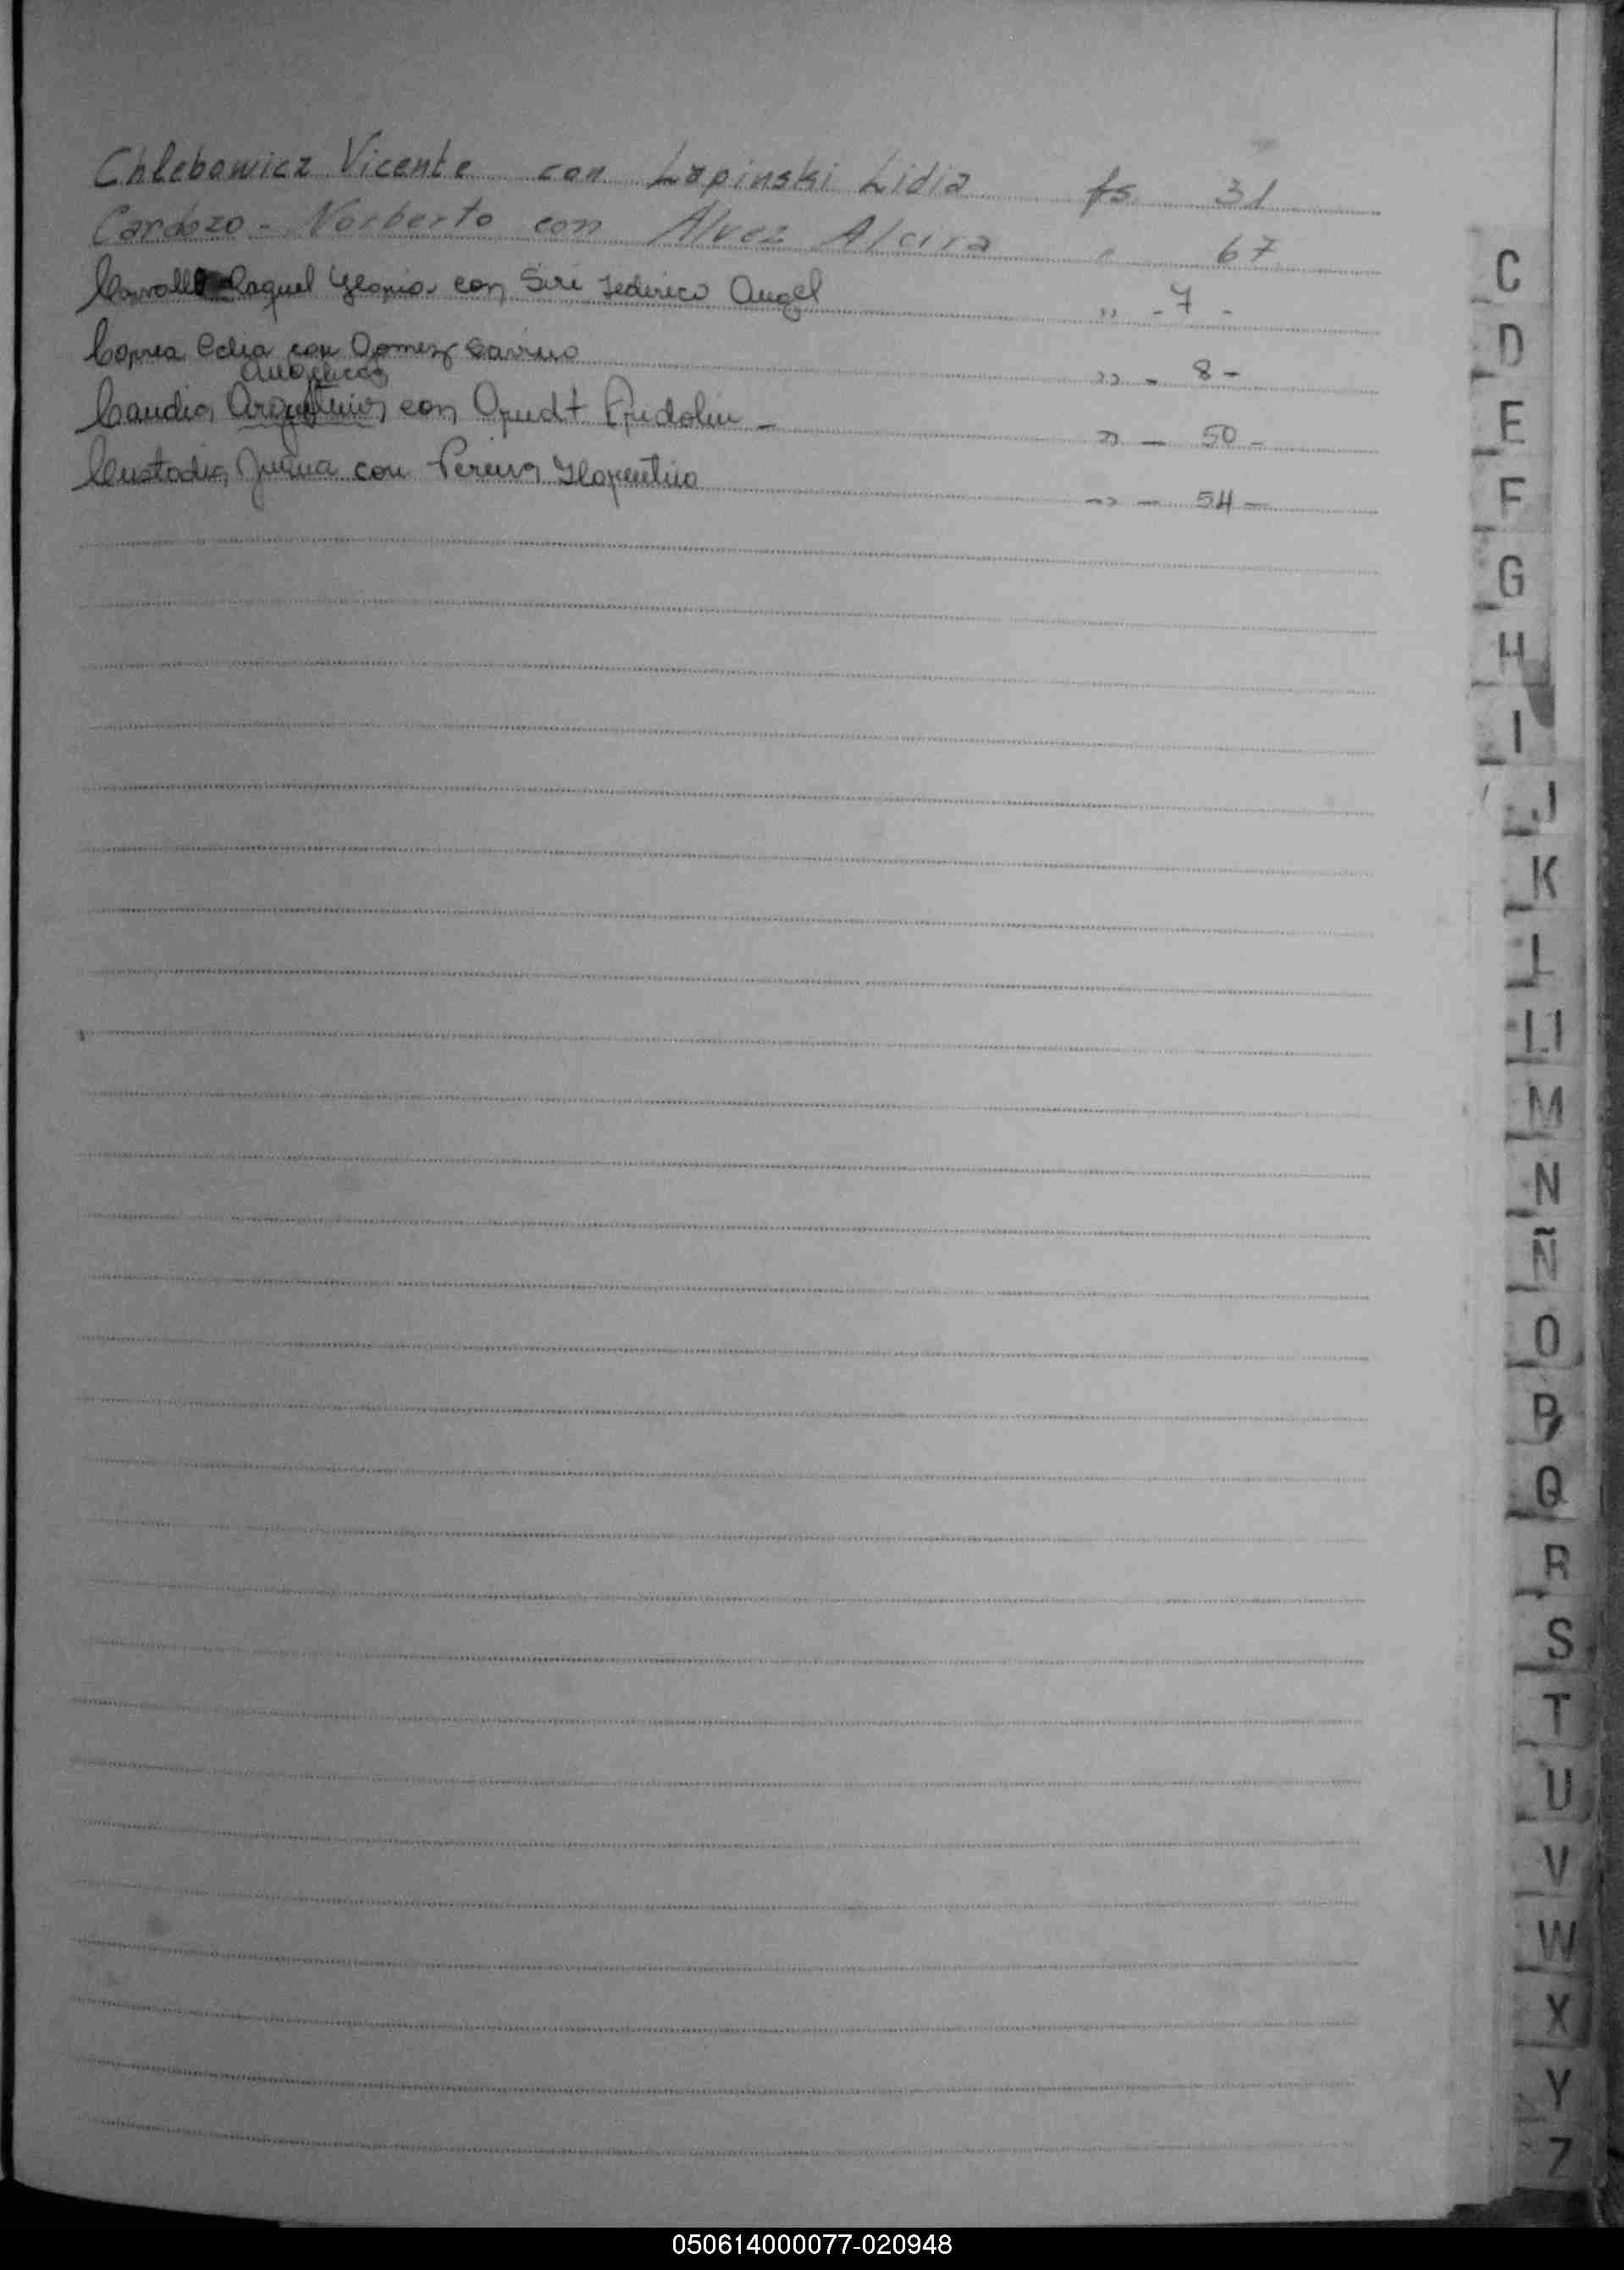 Chlebowicz Vicente con Lapinski Lidia fs. 31
Cardozo - Norberto con Alvez Alcira " 67
Raquel con Siri Federico Angel " - 7 -
Correa Celia con Gomez " - 8 -
Angelica
Candia con Fridolin - " - 50 -
Custodia con Pereira Florentino " - 54 -
C
D
E
F
G
H
I
J
K
L
Ll
M
N
Ñ
O
P
Q
R
S
T
U
V
W
X
Y
Z
050614000077-020948